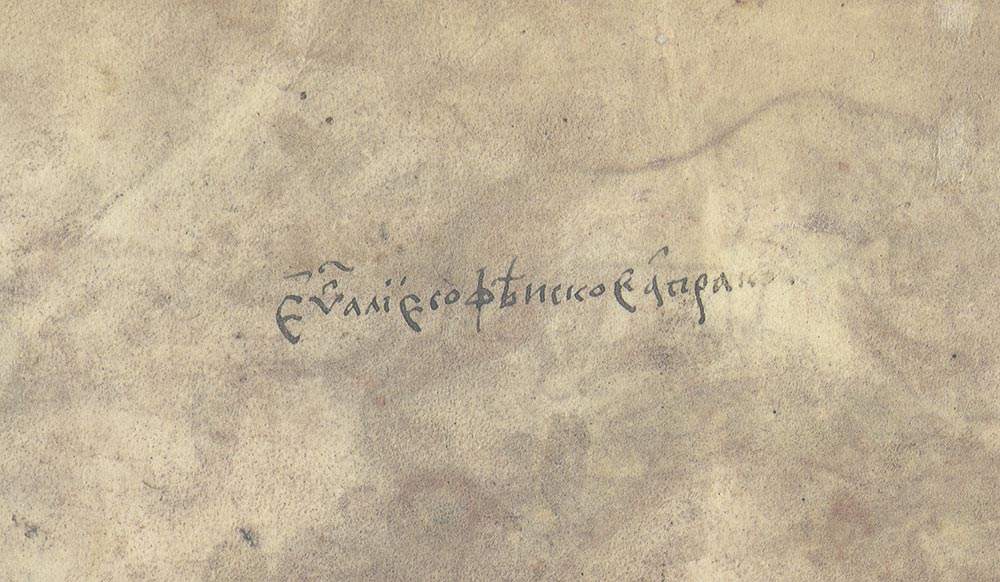 Єѵ҃алїє софѣискоє апрако